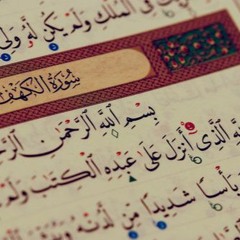 فِى ٱلْمُلْكِ وَلَمْ يَكُن لَّهُۥ وَلِىٌّ
سُورَةُ الْكَهْفِ
بِسْمِ ٱللَّهِ ٱلرَّحْمَٰنِ
ٱلَّذِىٓ أَنزَلَ عَلَىٰ عَبْدِهِ ٱلْكِتَٰبَ وَلَمْ
بَأْسًا شَدِيدًا مِّن لَّدُنْهُ